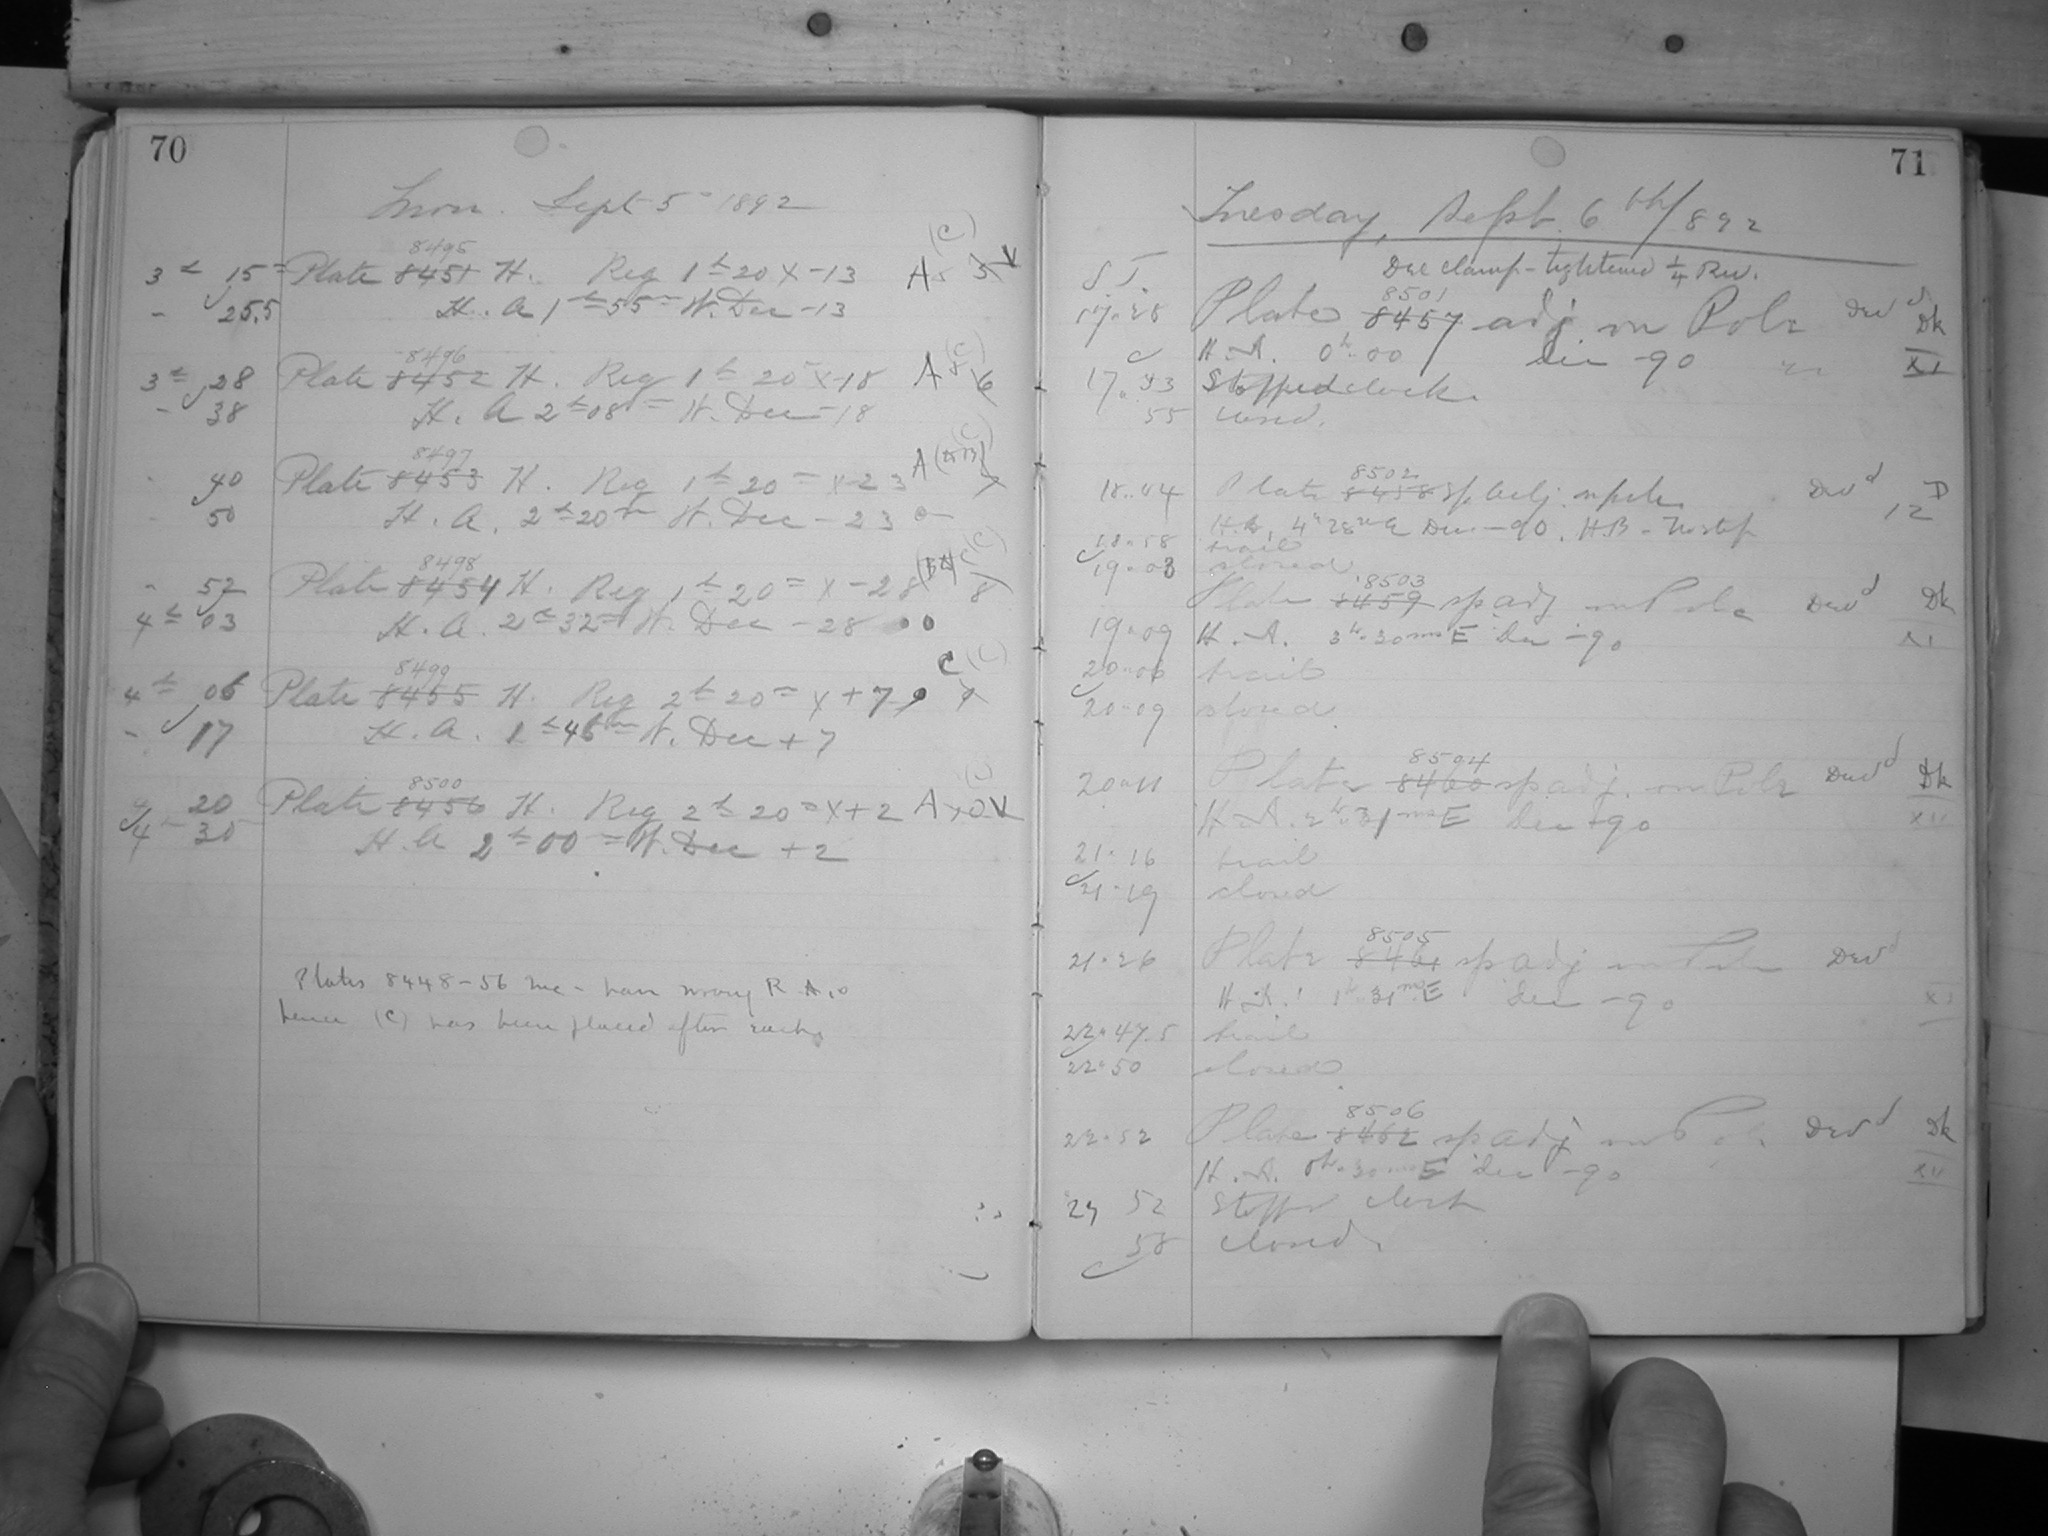 70
Mon. Sept 5 1892
8495 (C)
3h 15 Plate 8451 H. Reg 1h 20 x -13 A 5
- 25.5 H. A 1h 55m W. Dec -13
8496 (C)
3h 28 Plate 8452 H. Reg 1h 20 x -18 A 6
- 38 H. A 2h 08m W. Dec -18
8497 (C)
40 Plate 8453 H. Reg 1h 20m x -23 A
50 H. A. 2h 20m W. Dec -23
8498 (C)
- 52 Plate 8454 H. Reg 1h 20m x -28 8
4h 03 H. A. 2h 32m W. Dec -28
8499 C (C)
4h 06 Plate 8455 H. Reg 2h 20m x +7 9
- 17 H. A. 1h 46m W. Dec +7
8500 (C)
20 Plate 8456 H. Reg 2h 20m x +2 A
4 30 H. A 2h 00m W. Dec +2
Plates 8448-56 inc - have wrong R. A.
hence (C) has been placed after each.
71
Tuesday, Sept. 6th/892
Dec clamp - tightened 1/4 Rev.
S. T.
8501
17.28 Plate 8457 adj on Pole Dev d Dk
H. A. 0h.00 Dec -90 XI
17.43 Stopped clock.
55 closed.
8502
18.04 Plate 8458 sp. adj. on pole Dev d D
H.A. 4h 28m E Dec -90. H.B - No stop 12
18.58 trail
19.03 closed
8503
Plate 8459 sp adj on Pole Dev d Dk
19.09 H. A. 3h.30m E Dec -90 XI
20.06 trail
20.09 closed
8504
20.11 Plate 8460 sp adj. on Pole Dev d Dk
H. A. 2h.31m E Dec -90 XII
21.16 trail
21.19 closed
8505
21.26 Plate 8461 sp adj on Pole Dev d
H. A. 1h.31m E Dec -90 XI
22.47.5 trail
22.50 closed
8506
22.52 Plate 8462 sp adj on Pole Dev d Dk
H. A. 0h.30m E Dec -90 XII
52 Stopped clock
58 closed.